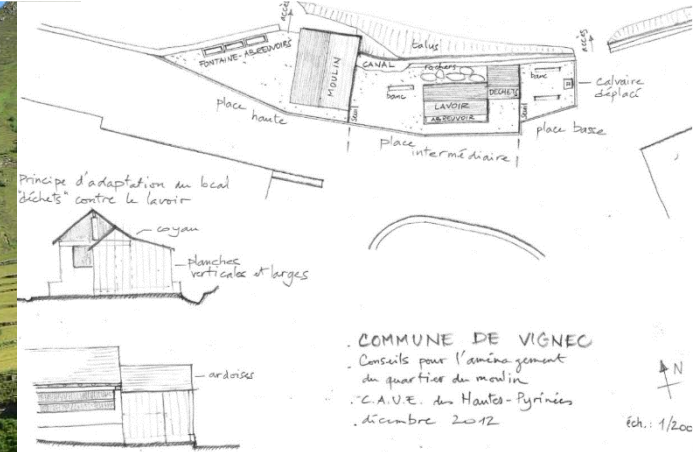 accès
FONTAINE-ABREUVOIRS
MOULIN
talus
CANAL
rochers
accès
banc
banc
DECHETS
LAVOIR
ABREUVOIR
seuil
seuil
calvaire
déplacé
place
haute
place
intermédiaire
place basse
Principe d'adaptation du local
"déchets" contre le lavoir
coyau
planches
verticales et larges
ardoises
. COMMUNE DE VIGNEC
. Conseils pour l'aménagement
du quartier du moulin
. C.A.U.E. des Hautes-Pyrénées
. décembre 2012
N
éch.: 1/200